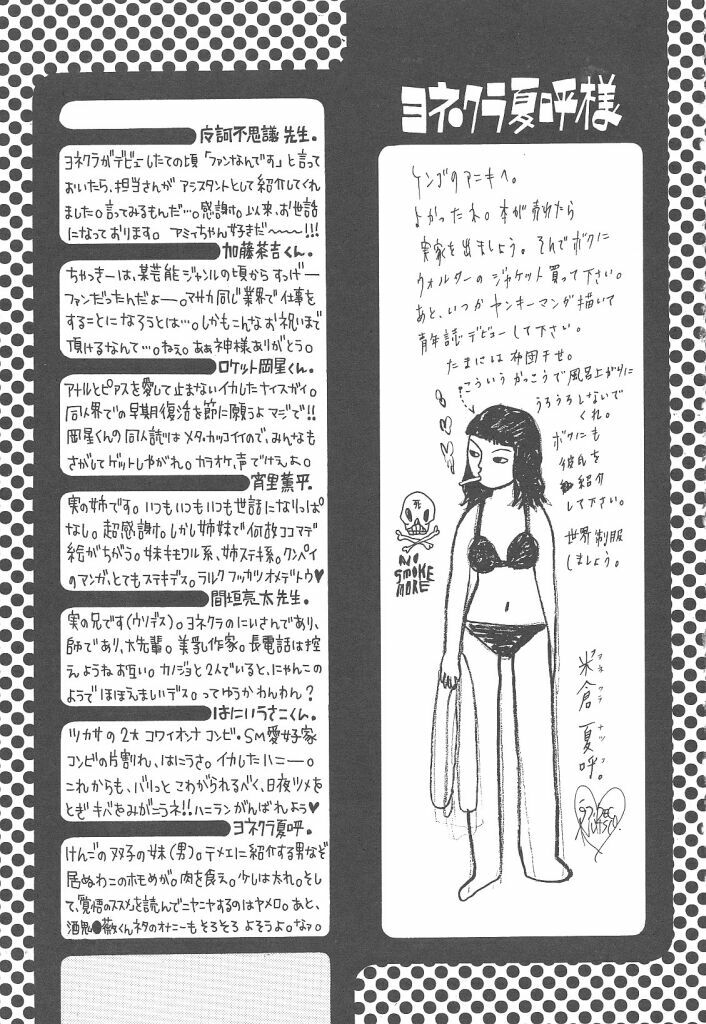 ヨネクラ夏呼様
ケンゴのアニキへ。
よかったね。本が売れたら
実家を出ましょう。そんでボクに
ウォルターのジャケット買って下さい。
あと、いつかヤンキーマンガ描いて
青年誌デビューして下さい。
たまには布団干せ。
こういうかっこうで風呂上がりに
うろうろしないで
くれ。
ボクにも
彼氏を
紹介
して下さい。
世界制服
しましょう。
死
NO
SMOKE
MORE
米倉夏呼。
ヨネクラナツコ
不思議先生。
ヨネクラがデビューしたての頃「ファンなんです」と言って
おいたら、担当さんがアシスタントとして紹介してくれ
ました。言ってみるもんだ…。感謝。以来、お世話
になっております。アミィちゃん好きだ〜〜〜!!!
加藤茶吉くん。
ちゃっきーは、某芸能ジャンルの頃からすっげー
ファンだったんだよー。マサカ同じ業界で仕事を
することになろうとは…。しかもこんなお祝いまで
頂けるなんて…。ねえ。ああ神様ありがとう。
ロケット岡星くん。
アナルとピアスを愛して止まないイカしたナイスガイ。
同人界での早期復活を節に願うよマジで!!
岡星くんの同人誌はメタカッコイイので、みんなも
さがしてゲットしやがれ。カラオケ、声でけえよ。
宵里薫平。
実の姉です。いつもいつもいつも世話になりっぱ
なし。超感謝。しかし姉妹で何故ココマデ
絵がちがう。妹キモワル系、姉ステキ系。クンペイ
のマンガ、とてもステキデス。ラルクフッカツオメデトウ♥
間垣亮太先生。
実の兄です(ウソデス)。ヨネクラのにいさんであり、
師であり、大先輩。美乳作家。長電話は控
えようねお互い。カノジョと2人でいると、にゃんこの
ようでほほえましいデス。ってゆうかわんわん?
はにいうさこくん。
ツカサの2大コワイオンナコンビ。SM愛好家
コンビの片割れ、はにうさ。イカしたハニー。
これからも、バリっとこわがられるべく、日夜ツメを
とぎキバをみがこうネ!!ハニランがんばれよう♥
ヨネクラ夏呼。
けんごの双子の妹(男)。テメエに紹介する男など
居ぬわこのホモめが。肉を食え。少しは太れ。そし
て、覚悟のススメを読んでニヤニヤするのはヤメロ。あと、
酒鬼●薇くんネタのオナニーもそろそろよそうよ。なァ。